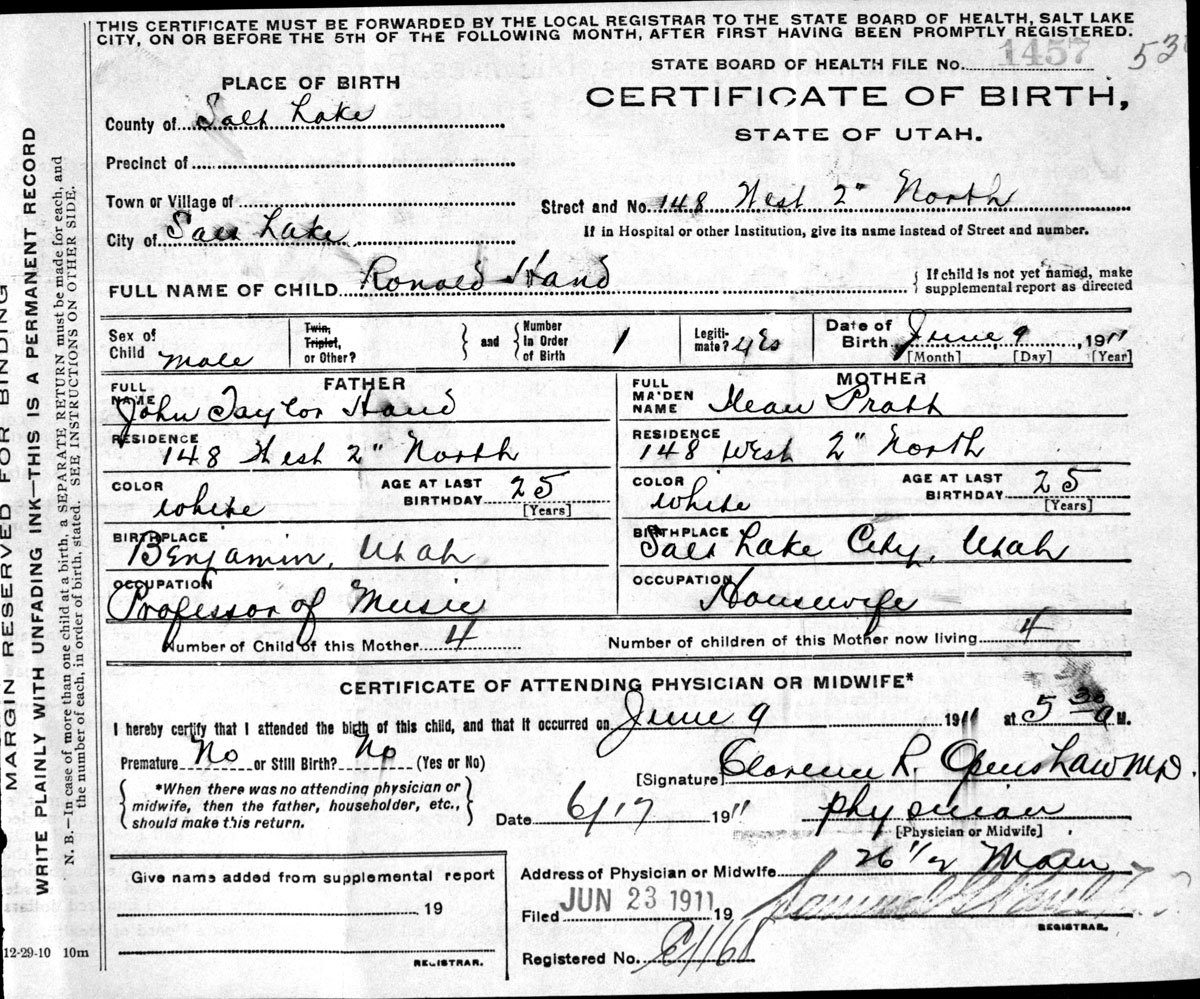 THIS CERTIFICATE MUST BE FORWARDED BY THE LOCAL REGISTRAR TO THE STATE BOARD OF HEALTH, SALT LAKE
CITY, ON OR BEFORE THE 5TH OF THE FOLLOWING MONTH, AFTER FIRST HAVING BEEN PROMPTLY REGISTERED.
STATE BOARD OF HEALTH FILE No. 1457
PLACE OF BIRTH
CERTIFICATE OF BIRTH,
STATE OF UTAH.
County of Salt Lake
Precinct of
Town or Village of
Street and No. 148 West 2" North
City of Salt Lake
If in Hospital or other Institution, give its name instead of Street and number.
FULL NAME OF CHILD Ronald Hand
If child is not yet named, make
supplemental report as directed
Sex of Child Male
Twin, Triplet, or Other?
and
Number in Order of Birth 1
Legiti-mate? yes
Date of Birth June 9, 1911
[Month] [Day] [Year]
FATHER
FULL NAME John Taylor Hand
RESIDENCE 148 West 2" North
COLOR white
AGE AT LAST BIRTHDAY 25
[Years]
BIRTHPLACE Benjamin, Utah
OCCUPATION Professor of Music
MOTHER
FULL MAIDEN NAME Pratt
RESIDENCE 148 West 2" North
COLOR white
AGE AT LAST BIRTHDAY 25
[Years]
BIRTHPLACE Salt Lake City, Utah
OCCUPATION Housewife
Number of Child of this Mother 4
Number of children of this Mother now living 4
CERTIFICATE OF ATTENDING PHYSICIAN OR MIDWIFE*
I hereby certify that I attended the birth of this child, and that it occurred on June 9 1911 at 5 30 a M.
Premature No or Still Birth? No (Yes or No)
[Signature] Clarence R. Openshaw MD.
*When there was no attending physician or
midwife, then the father, householder, etc.,
should make this return.
Date 6/17 1911
physician
[Physician or Midwife]
Address of Physician or Midwife 26 1/2 Main
Give name added from supplemental report
19
REGISTRAR.
Filed JUN 23 1911 19
REGISTRAR.
Registered No.
12-29-10 10m
MARGIN RESERVED FOR BINDING
WRITE PLAINLY WITH UNFADING INK—THIS IS A PERMANENT RECORD
N. B.—In case of more than one child at a birth, a SEPARATE RETURN must be made for each, and
the number of each, in order of birth, stated. SEE INSTRUCTIONS ON OTHER SIDE.